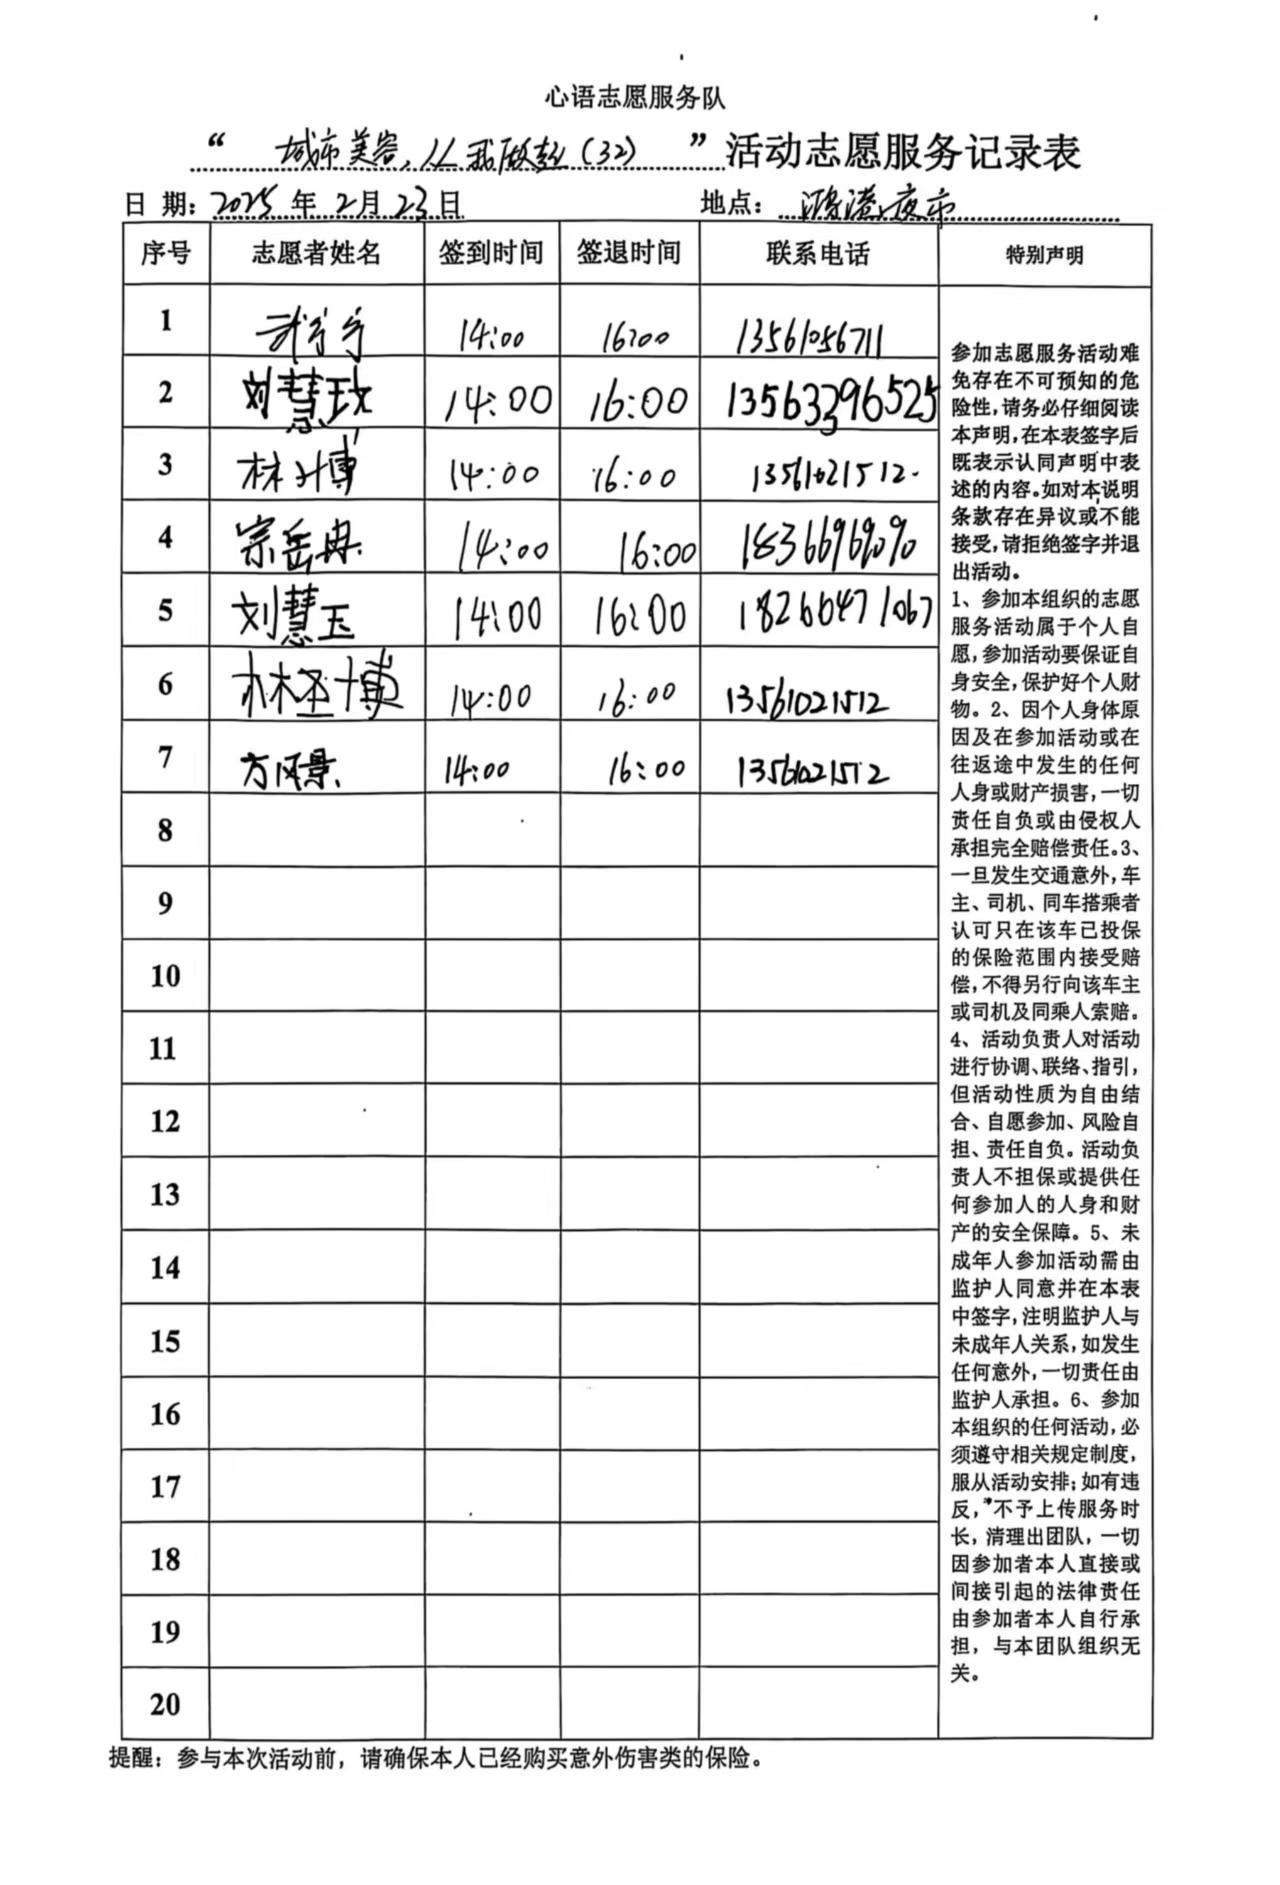 心语志愿服务队
“城市美容,从我做起(32)”活动志愿服务记录表
日 期: 2025 年 2 月 23 日 地点: 鸿港夜市
序号 志愿者姓名 签到时间 签退时间 联系电话 特别声明
1 14:00 16:00 13561056711
2 刘慧玟 14:00 16:00 13563396525
3 林圤博 14:00 16:00 13561021512
4 宗岳冉 14:00 16:00 18366969090
5 刘慧玉 14:00 16:00 18266471067
6 14:00 16:00 13561021512
7 方风景 14:00 16:00 13561021512
8
9
10
11
12
13
14
15
16
17
18
19
20
参加志愿服务活动难
免存在不可预知的危
险性,请务必仔细阅读
本声明,在本表签字后
既表示认同声明中表
述的内容。如对本说明
条款存在异议或不能
接受,请拒绝签字并退
出活动。
1、参加本组织的志愿
服务活动属于个人自
愿,参加活动要保证自
身安全,保护好个人财
物。2、因个人身体原
因及在参加活动或在
往返途中发生的任何
人身或财产损害,一切
责任自负或由侵权人
承担完全赔偿责任。3、
一旦发生交通意外,车
主、司机、同车搭乘者
认可只在该车已投保
的保险范围内接受赔
偿,不得另行向该车主
或司机及同乘人索赔。
4、活动负责人对活动
进行协调、联络、指引,
但活动性质为自由结
合、自愿参加、风险自
担、责任自负。活动负
责人不担保或提供任
何参加人的人身和财
产的安全保障。5、未
成年人参加活动需由
监护人同意并在本表
中签字,注明监护人与
未成年人关系,如发生
任何意外,一切责任由
监护人承担。6、参加
本组织的任何活动,必
须遵守相关规定制度,
服从活动安排;如有违
反,不予上传服务时
长,清理出团队,一切
因参加者本人直接或
间接引起的法律责任
由参加者本人自行承
担,与本团队组织无
关。
提醒:参与本次活动前,请确保本人已经购买意外伤害类的保险。